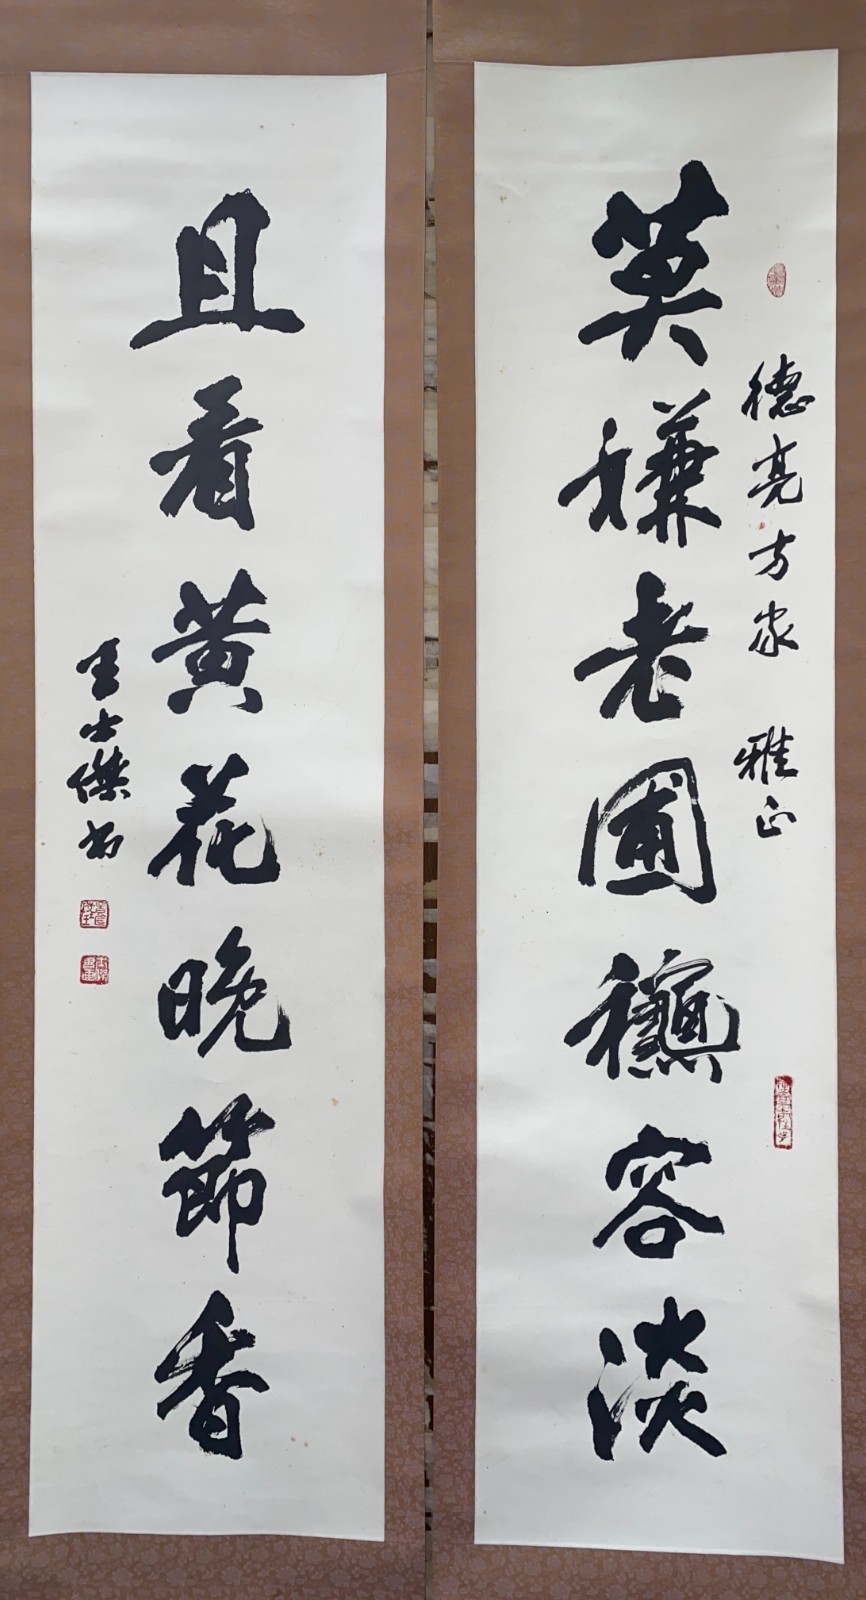 莫嫌老圃龝容淡
德亮方家 雅正
且看黄花晚節香
王士傑书